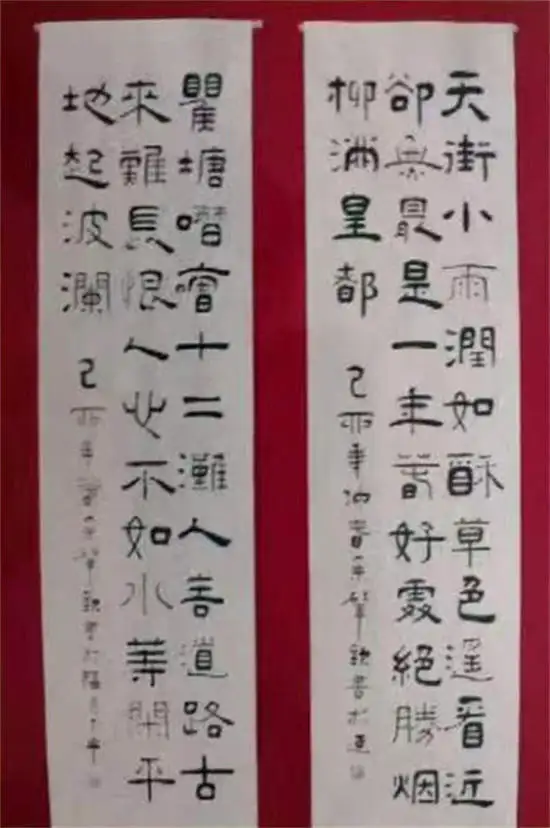 天街小雨潤如酥草色遥看近
卻無最是一年春好處絕勝烟
柳滿皇都
瞿塘嘈嘈十二灘人言道路古
來難長恨人心不如水等閒平
地起波瀾